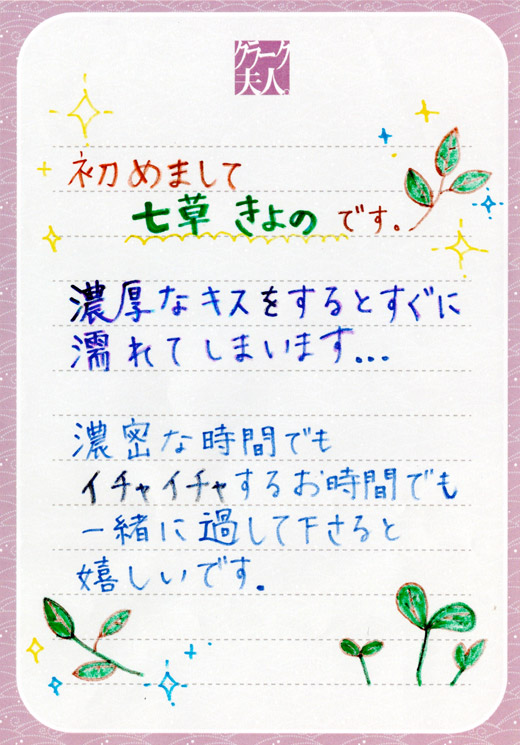 クラーク
夫人。
初めまして
七草 きよの です。
濃厚なキスをするとすぐに
濡れてしまいます...
濃密な時間でも
イチャイチャするお時間でも
一緒に過して下さると
嬉しいです。